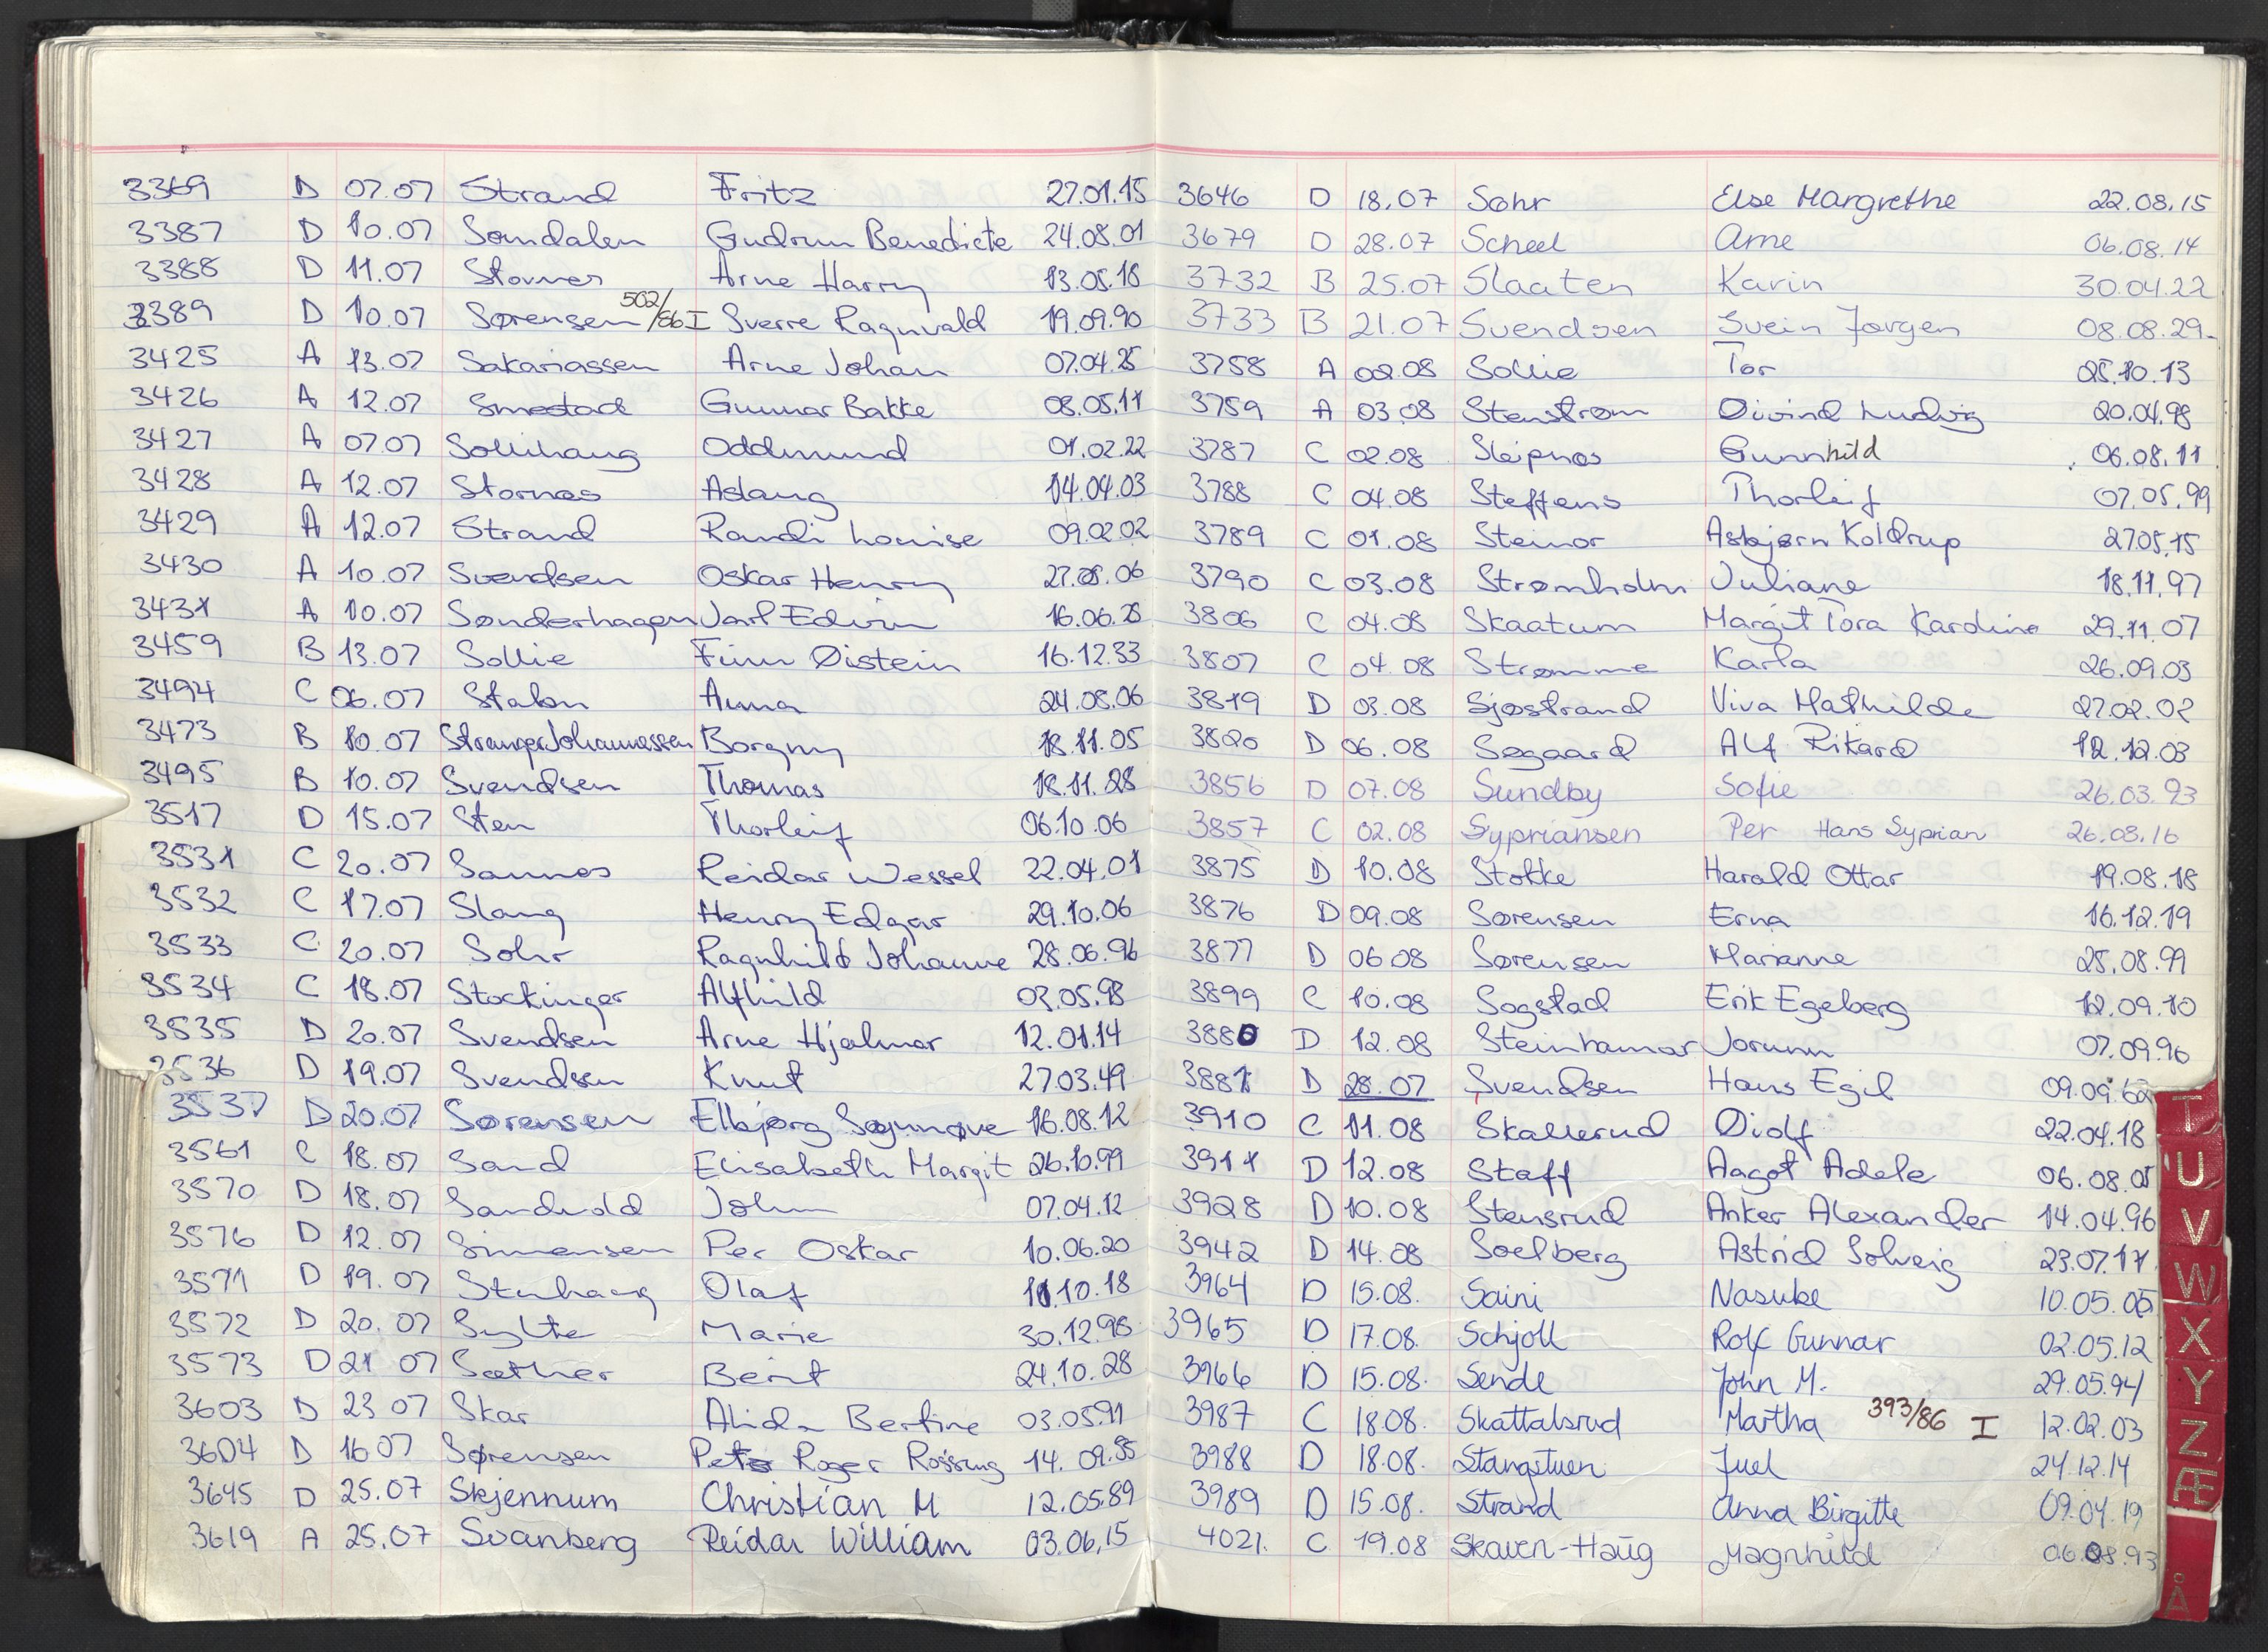 3369 D 07.07 Strand Fritz 27.01.15
3387 D 10.07 Sømdalen Gudrun Benedicte 24.08.01
3388 D 11.07 Stovner Arne Harry 13.05.18
3389 D 10.07 Sørensen 502/86 I Sverre Ragnvald 19.09.90
3425 A 13.07 Sakariassen Arne Johan 07.04.25
3426 A 12.07 Smestad Gunnar Bakke 08.05.11
3427 A 07.07 Sollihaug Oddmund 01.02.22
3428 A 12.07 Stornes Aslaug 14.04.03
3429 A 12.07 Strand Randi Louise 09.02.02
3430 A 10.07 Svendsen Oskar Henry 27.08.06
3431 A 10.07 Sønderhagen Jarl Edvin 16.06.28
3459 B 13.07 Sollie Finn Øistein 16.12.33
3494 C 06.07 Stabn Anna 24.08.06
3473 B 10.07 Stranger Johannessen Borgny 18.11.05
3495 B 10.07 Svendsen Thomas 18.11.28
3517 D 15.07 Sten Thorleif 06.10.06
3531 C 20.07 Sannes Reidar Wessel 22.04.01
3532 C 17.07 Slang Henry Edgar 29.10.06
3533 C 20.07 Sohr Ragnhild Johanne 28.06.96
3534 C 18.07 Stockinger Alfhild 03.05.98
3535 D 20.07 Svendsen Arne Hjalmar 12.01.14
3536 D 19.07 Svendsen Knut 27.03.49
3537 D 20.07 Sørensen Elbjørg Søgunøve 16.08.12
3561 C 18.07 Sand Elisabeth Margit 26.10.99
3570 D 18.07 Sandvold John 07.04.12
3576 D 12.07 Simensen Per Oskar 10.06.20
3571 D 19.07 Stenhaug Olaf 11.10.18
3572 D 20.07 Sylte Marie 30.12.98
3573 D 21 07 Sæther Berit 24.10.28
3603 D 23 07 Skar Alida Bertine 03.05.91
3604 D 16 07 Sørensen Peter Roger Rossing 14.09.85
3645 D 25.07 Skjennum Christian M 12.05.89
3619 A 25.07 Svanberg Reidar William 03.06.15
3646 D 18.07 Søhr Else Margrethe 22.08.15
3679 D 28.07 Scheel Arne 06.08.14
3732 B 25.07 Slaaten Karin 30.04.22
3733 B 21.07 Svendsen Svein Jørgen 08.08.29
3758 A 02.08 Sollie Tor 25.10.13
3759 A 03.08 Stenstrøm Øivind Ludvig 20.04.98
3787 C 02.08 Sleipnes Gunnhild 06.08.11
3788 C 04.08 Steffens Thorleif 07.05.99
3789 C 01.08 Steinor Asbjørn Koldrup 27.05.15
3790 C 03.08 Strømholm Juliane 18.11.97
3806 C 04.08 Skaatum Margit Tora Karoline 29.11.07
3807 C 04.08 Strømme Karla 26.09.03
3819 D 03.08 Sjøstrand Viva Mathilde 27.02.02
3820 D 06.08 Søgaard Alf Rikard 12.12.03
3856 D 07.08 Sundby Sofie 26.03.93
3857 C 02.08 Sypriansen Per Hans Syprian 26.08.16
3875 D 10.08 Stokke Harald Ottar 19.08.18
3876 D 09.08 Sørensen Erna 16.12.19
3877 D 06 08 Sørensen Marianne 25.08.99
3899 C 10.08 Sogstad Erik Egeberg 12.09.10
3880 D 12.08 Steinhamar Jorunn 07.09.96
3881 D 28.07 Svendsen Hans Egil 09.09.62
3910 C 11.08 Skallerud Øiolf 22.04.18
3911 D 12.08 Staff Aagot Adele 06.08.05
3928 D 10.08 Stensrud Anker Alexander 14.04.96
3942 D 14.08 Soelberg Astrid Solveig 23.07.11
3964 D 15.08. Saini Nasube 10.05.05
3965 D 17.08. Schjoll Rolf Gunnar 02.05.12
3966 D 15.08. Sende John M. 29.05.94
3987 C 18.08. Skattalsrud Martha 393/86 I 12.02.03
3988 D 18.08. Stangstuen Juel 24.12.14
3989 D 15.08. Strand Anna Birgitte 09.04.19
4021. C 19.08 Skaven-Haug Magnhild 06.08.93
T
U
V
W
X
Y
Z
Æ
Å